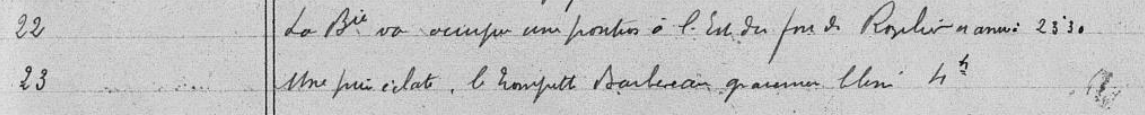 22 La Bie va occuper une position à l'Est du fort de Rozelier arrivée 23h30
23 Une pièce éclate, le trompette Barbereau grièvement blessé 4h